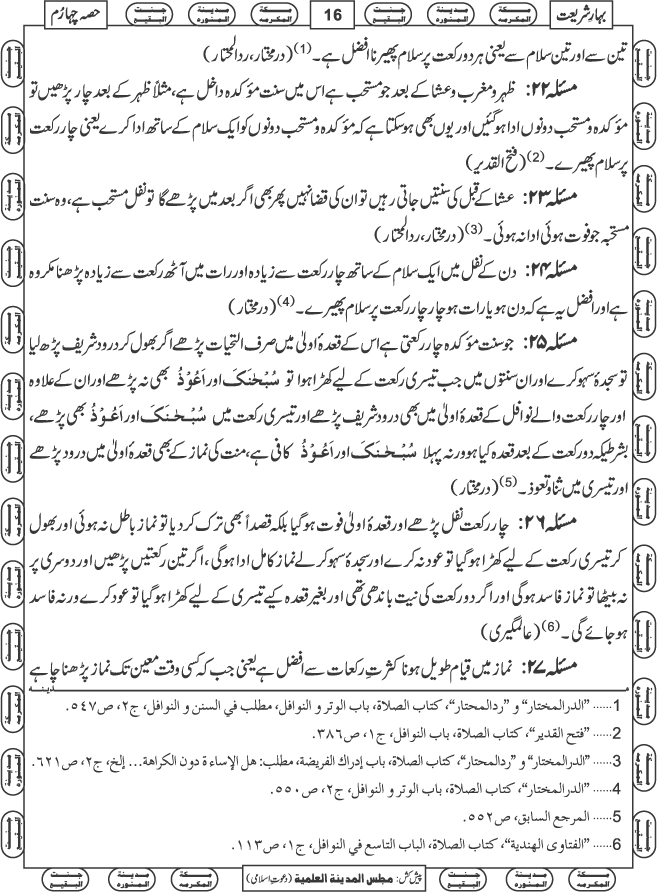 بہارِ شریعت
16
حصہ چہارم
تین سے اور تین سلام سے یعنی ہر دو رکعت پر سلام پھیرنا افضل ہے۔(1) (درمختار، ردالمحتار)
مسئلہ ۲۲: ظہر و مغرب و عشا کے بعد جو مستحب ہے اس میں سنت مؤکدہ داخل ہے، مثلاً ظہر کے بعد چار پڑھیں تو
مؤکدہ و مستحب دونوں ادا ہوگئیں اور یوں بھی ہو سکتا ہے کہ مؤکدہ و مستحب دونوں کو ایک سلام کے ساتھ ادا کرے یعنی چار رکعت
پر سلام پھیرے۔(2) (فتح القدیر)
مسئلہ ۲۳: عشا کے قبل کی سنتیں جاتی رہیں تو ان کی قضا نہیں پھر بھی اگر بعد میں پڑھے گا تو نفل مستحب ہے، وہ سنت
مستحبہ جو فوت ہوئی ادا نہ ہوئی۔(3) (درمختار، ردالمحتار)
مسئلہ ۲۴: دن کے نفل میں ایک سلام کے ساتھ چار رکعت سے زیادہ اور رات میں آٹھ رکعت سے زیادہ پڑھنا مکروہ
ہے اور افضل یہ ہے کہ دن ہو یا رات ہو چار چار رکعت پر سلام پھیرے۔(4) (درمختار)
مسئلہ ۲۵: جو سنت مؤکدہ چار رکعتی ہے اس کے قعدۂ اولیٰ میں صرف التحیات پڑھے اگر بھول کر درود شریف پڑھ لیا
تو سجدۂ سہو کرے اور ان سنتوں میں جب تیسری رکعت کے لیے کھڑا ہوا تو سُبْحٰنَکَ اور اَعُوْذُ بھی نہ پڑھے اور ان کے علاوہ
اور چار رکعت والے نوافل کے قعدۂ اولیٰ میں بھی درود شریف پڑھے اور تیسری رکعت میں سُبْحٰنَکَ اور اَعُوْذُ بھی پڑھے،
بشرطیکہ دو رکعت کے بعد قعدہ کیا ہو ورنہ پہلا سُبْحٰنَکَ اور اَعُوْذُ کافی ہے، منت کی نماز کے بھی قعدۂ اولیٰ میں درود پڑھے
اور تیسری میں ثنا و تعوذ۔(5) (درمختار)
مسئلہ ۲۶: چار رکعت نفل پڑھے اور قعدۂ اولیٰ فوت ہوگیا بلکہ قصداً بھی ترک کر دیا تو نماز باطل نہ ہوئی اور بھول
کر تیسری رکعت کے لیے کھڑا ہوگیا تو عود نہ کرے اور سجدۂ سہو کر لے نماز کامل ادا ہوگی، اگر تین رکعتیں پڑھیں اور دوسری پر
نہ بیٹھا تو نماز فاسد ہوگی اور اگر دو رکعت کی نیت باندھی تھی اور بغیر قعدہ کیے تیسری کے لیے کھڑا ہوگیا تو عود کرے ورنہ فاسد
ہو جائے گی۔(6) (عالمگیری)
مسئلہ ۲۷: نماز میں قیام طویل ہونا کثرتِ رکعات سے افضل ہے یعنی جب کہ کسی وقت معین تک نماز پڑھنا چاہے
1...... ''الدرالمختار'' و ''ردالمحتار''، کتاب الصلاة، باب الوتر و النوافل، مطلب في السنن و النوافل، ج۲، ص۵۴۷.
2...... ''فتح القدیر''، کتاب الصلاة، باب النوافل، ج۱، ص۳۸۶.
3...... ''الدرالمختار'' و ''ردالمحتار''، کتاب الصلاة، باب إدراك الفریضة، مطلب: هل الإساءة دون الکراهة... إلخ، ج۲، ص۶۲۱.
4...... ''الدرالمختار''، کتاب الصلاة، باب الوتر و النوافل، ج۲، ص۵۵۰.
5...... المرجع السابق، ص۵۵۲.
6...... ''الفتاوی الهندیة''، کتاب الصلاة، الباب التاسع في النوافل، ج۱، ص۱۱۳.
پیش کش: مجلس المدینة العلمیة (دعوتِ اسلامی)